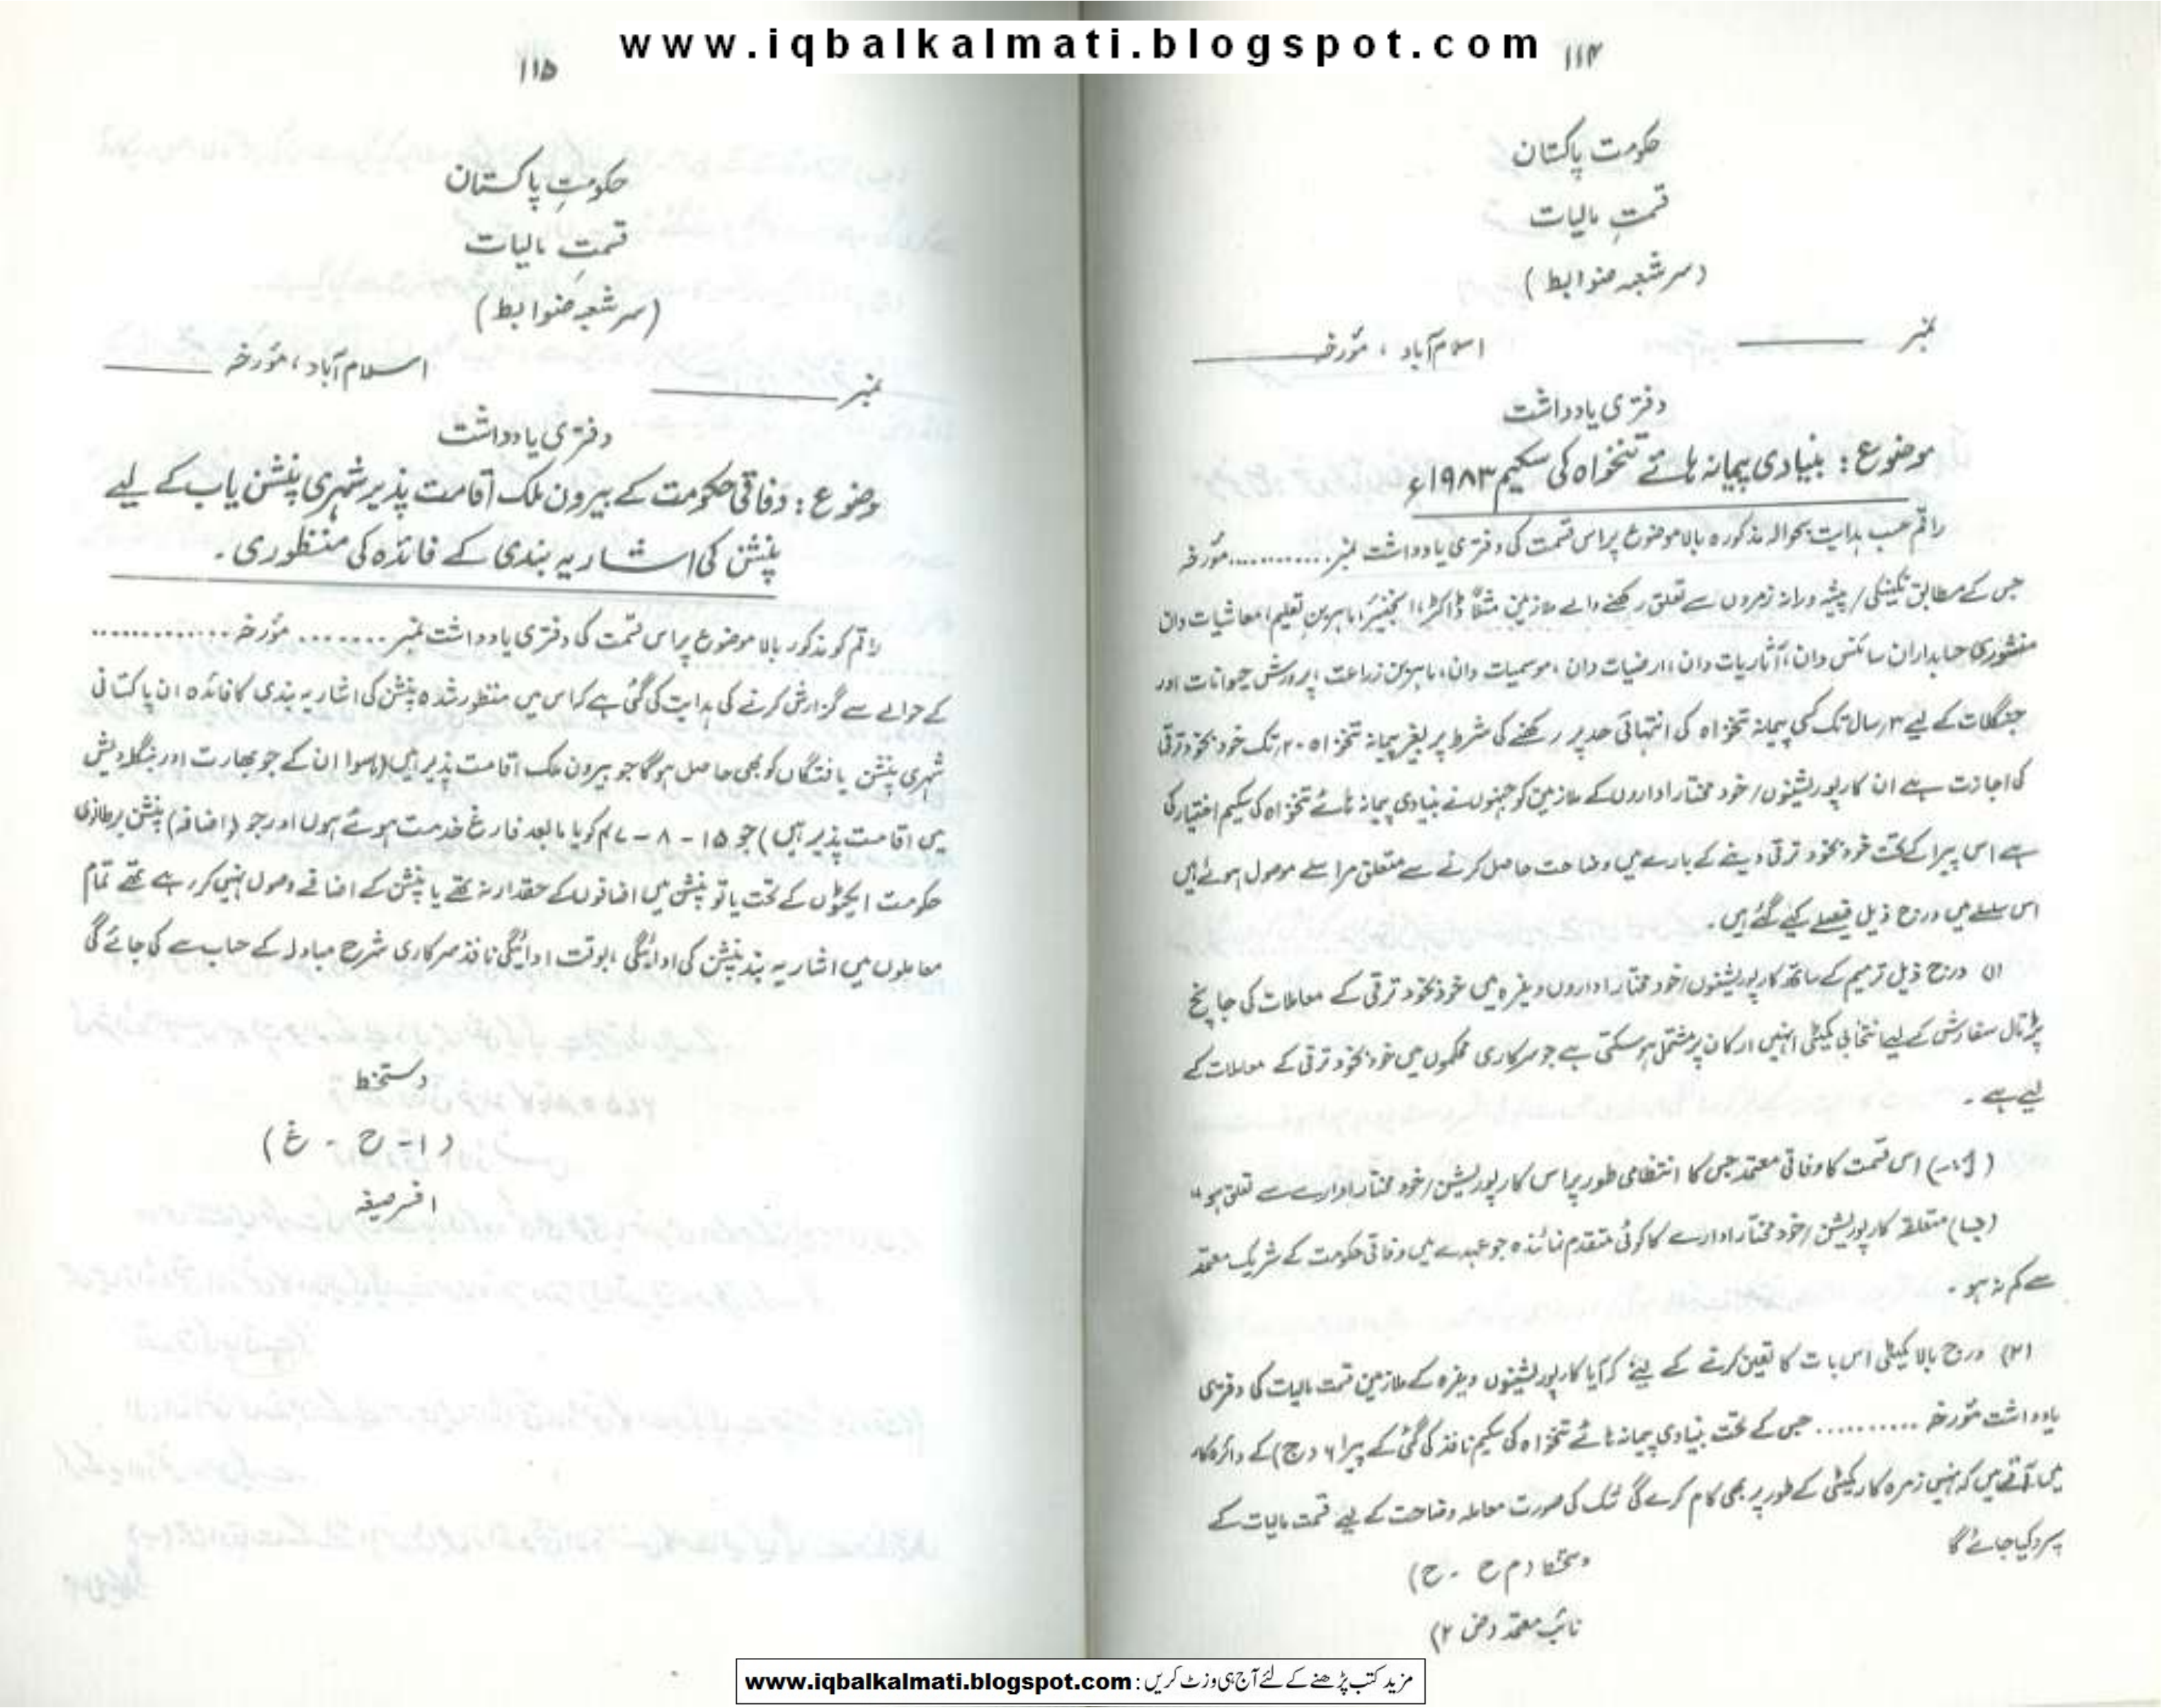 www.iqbalkalmati.blogspot.com
۱۱۴
حکومت پاکستان
قسمتِ مالیات
(سر شعبہ ضوابط)
نمبر ________ اسلام آباد ، مؤرخہ ________
دفتری یادداشت
موضوع : بنیادی پیمانہ ہائے تنخواہ کی سکیم ۱۹۸۳ء
راقم حسب ہدایت بحوالہ مذکورہ بالا موضوع پر اس قسمت کی دفتری یادداشت نمبر ........... مؤرخہ
جس کے مطابق تکنیکی / پیشہ ورانہ زمروں سے تعلق رکھنے والے ملازمین مثلاً ڈاکٹر، انجنیئر، ماہرین تعلیم، معاشیات دان
منشوری حسابداران سائنس دان، آثاریات دان، ارضیات دان، موسمیات دان، ماہرین زراعت، پرورش حیوانات اور
جنگلات کے لیے ۳ سال تک کسی پیمانہ تنخواہ کی انتہائی حد پر رکھنے کی شرط پر بغیر پیمانہ تنخواہ ۲۰ تک خود بخود ترقی
کی اجازت ہے ان کارپوریشنوں / خود مختار اداروں کے ملازمین کو جنہوں نے بنیادی پیمانہ ہائے تنخواہ کی سکیم اختیار کی
ہے اس پیرا کے تحت خود بخود ترقی دینے کے بارے میں وضاحت حاصل کرنے سے متعلق مراسلے موصول ہوئے ہیں
اس سلسلے میں درج ذیل فیصلے کئے گئے ہیں۔
(۱) درج ذیل ترمیم کے ساتھ کارپوریشنوں / خود مختار اداروں وغیرہ میں خود بخود ترقی کے معاملات کی جانچ
پڑتال سفارش کے لیے انتخابی کمیٹی انہیں ارکان پر مشتمل ہو سکتی ہے جو سرکاری محکموں میں خود بخود ترقی کے معاملات کے
لیے ہے ۔
اس قسمت کا وفاقی معتمد جس کا انتظامی طور پر اس کارپوریشن / خود مختار ادارے سے تعلق ہو "
(ب) متعلقہ کارپوریشن / خود مختار ادارے کا کوئی متقدم نمائندہ جو عہدے میں وفاقی حکومت کے شریک معتمد
سے کم نہ ہو ۔
(۲) درج بالا کمیٹی اس بات کا تعین کرنے کے لیئے کہ آیا کارپوریشنوں وغیرہ کے ملازمین قسمت مالیات کی دفتری
یادداشت مؤرخہ .......... جس کے تحت بنیادی پیمانہ ہائے تنخواہ کی سکیم نافذ کی گئی کے پیرا ۶ (ج) کے دائرہ کار
میں آتے ہیں کہ نہیں زمرہ کار کمیٹی کے طور پر بھی کام کرے گی شک کی صورت معاملہ وضاحت کے لیے قسمت مالیات کے
سپرد کیا جائے گا
دستخط (م ح ۔ ح)
نائب معتمد (ض ۲)
۱۱۵
حکومتِ پاکستان
قسمتِ مالیات
(سر شعبہ ضوابط)
نمبر ________ اسلام آباد ، مؤرخہ ________
دفتری یادداشت
موضوع : وفاقی حکومت کے بیرون ملک اقامت پذیر شہری پنشن یاب کے لیے
پنشن کی اشاریہ بندی کے فائدہ کی منظوری ۔
راقم کو مذکور بالا موضوع پر اس قسمت کی دفتری یادداشت نمبر ........ مؤرخہ .............
کے حوالے سے گزارش کرنے کی ہدایت کی گئی ہے کہ اس میں منظور شدہ پنشن کی اشاریہ بندی کا فائدہ ان پاکستانی
شہری پنشن یافتگاں کو بھی حاصل ہوگا جو بیرون ملک اقامت پذیر ہیں (ماسوا ان کے جو بھارت اور بنگلا دیش
میں اقامت پذیر ہیں) جو ۱۵ - ۸ - ۴۷ کو یا مابعد فارغ خدمت ہوئے ہوں اور جو (اضافہ) پنشن برطانوی
حکومت ایکٹوں کے تحت یا تو پنشن میں اضافوں کے حقدار نہ تھے یا پنشن کے اضافے وصول نہیں کر رہے تھے تمام
معاملوں میں اشاریہ بند پنشن کی ادائیگی ، بوقت ادائیگی نافذ سرکاری شرح مبادلہ کے حساب سے کی جائے گی
دستخط
(ا - ح - غ)
افسر صیغہ
مزید کتب پڑھنے کے لئے آج ہی وزٹ کریں : www.iqbalkalmati.blogspot.com